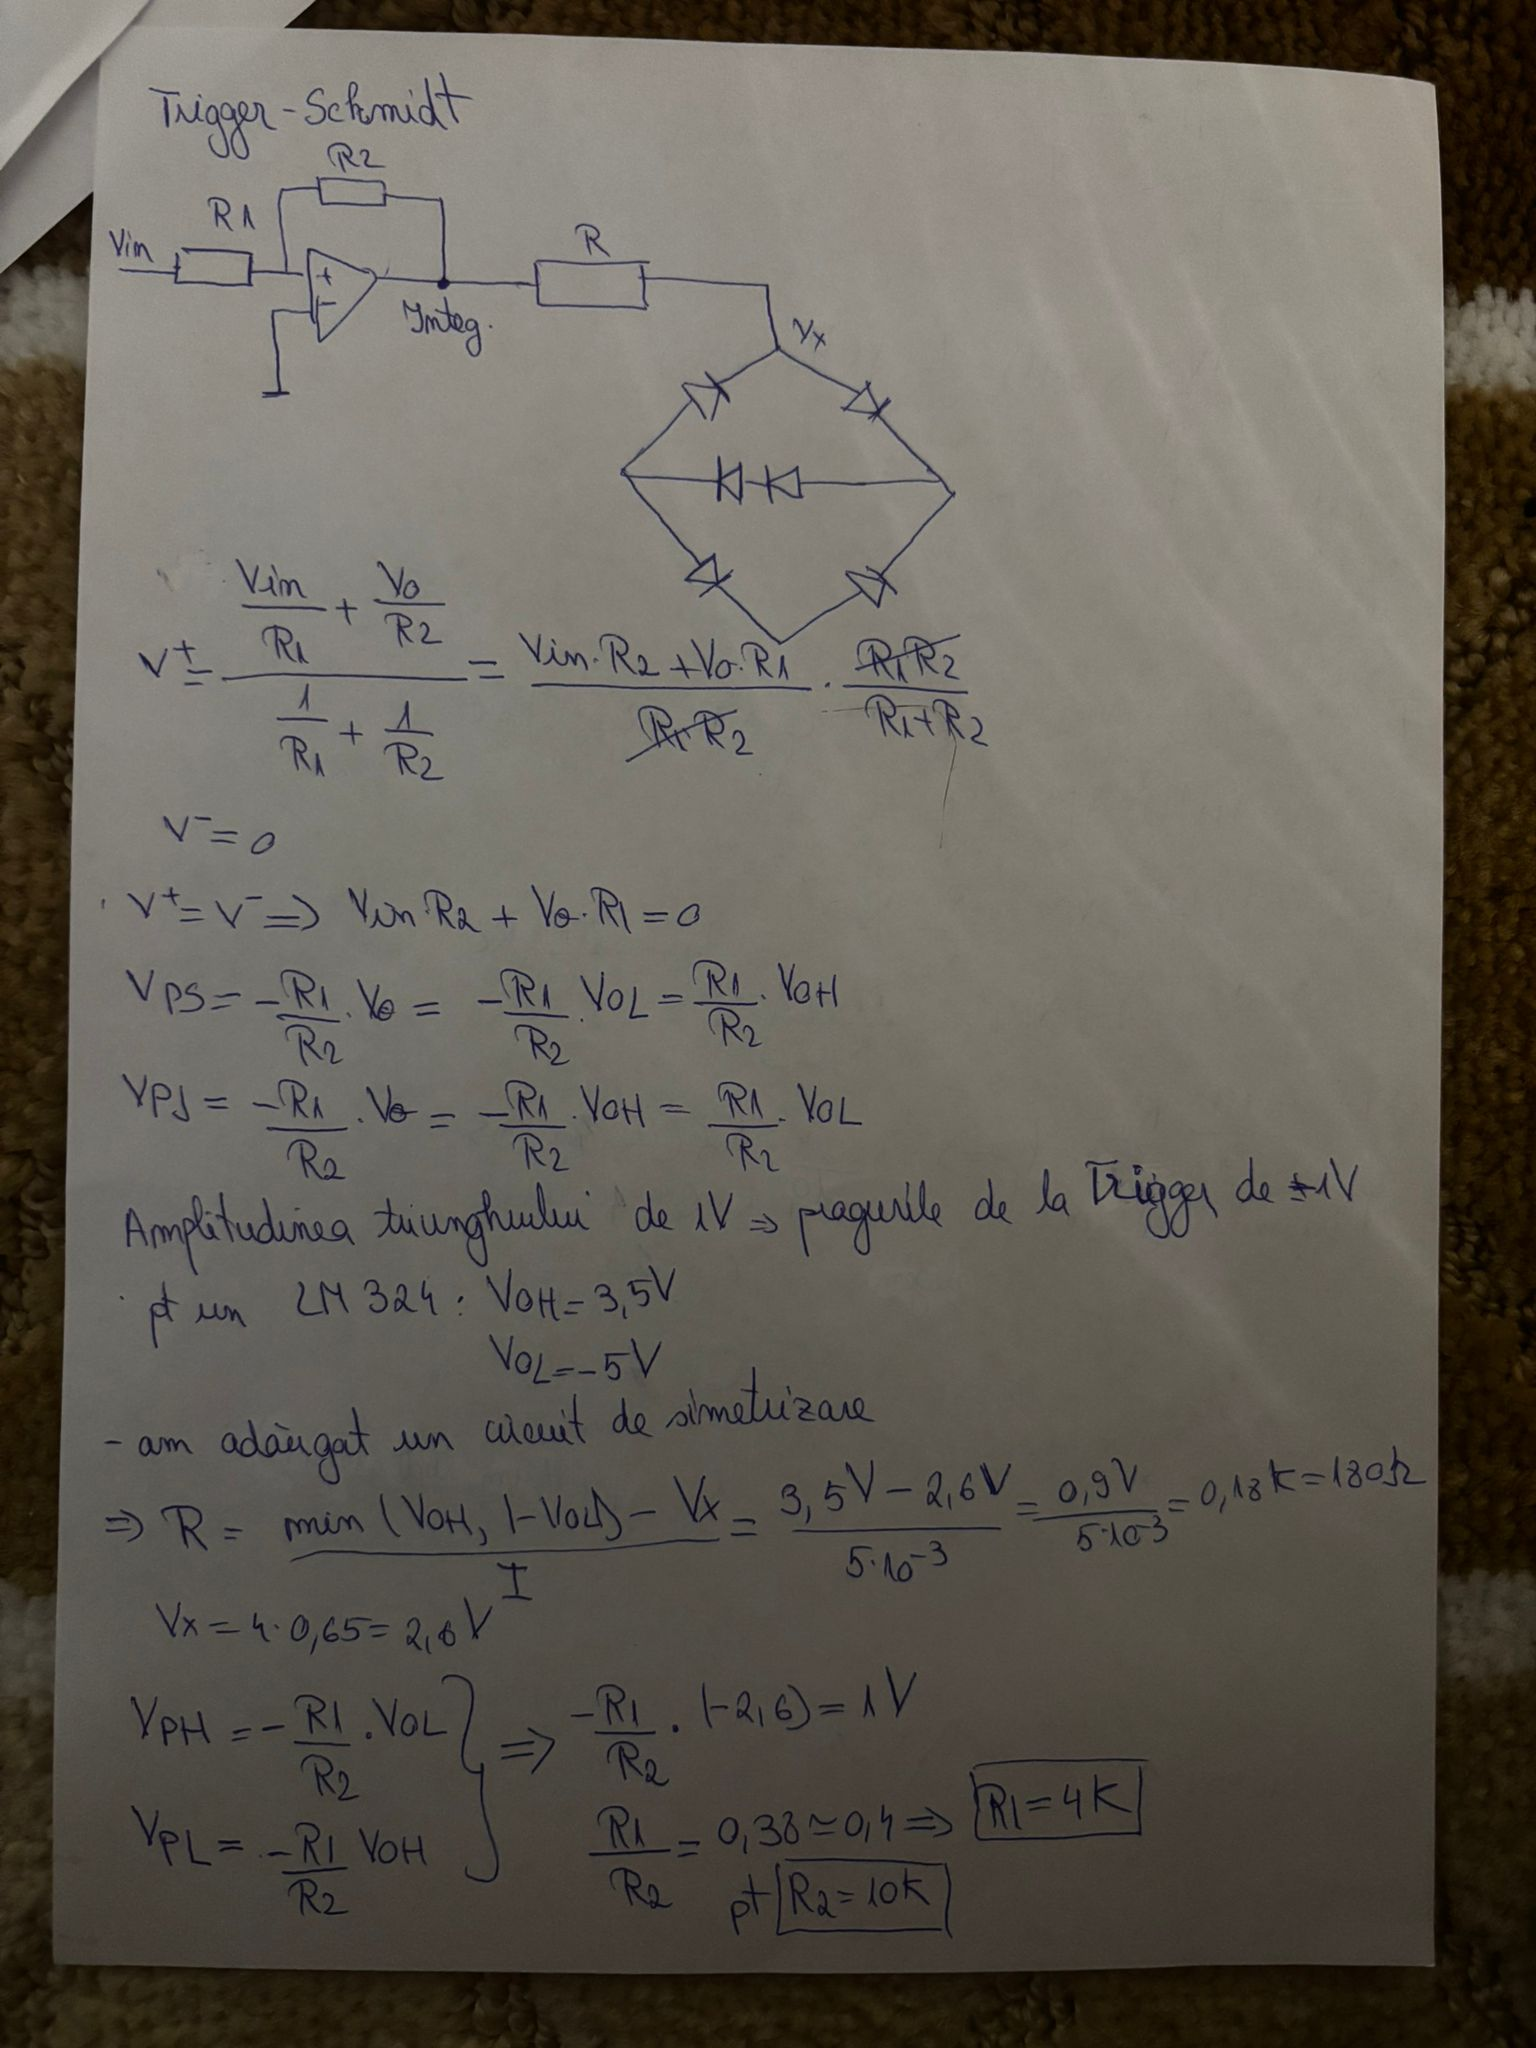 Trigger-Schmidt
R2
R1
Vin
R
+
-
Integ.
Vx
V⁺ = (Vin/R1 + Vo/R2) / (1/R1 + 1/R2) = (Vin·R2 + Vo·R1) / (R1·R2) · (R1R2) / (R1+R2)
V⁻ = 0
V⁺ = V⁻ => Vin·R2 + Vo·R1 = 0
VPS = -R1/R2 · Vo = -R1/R2 · VOL = R1/R2 · VOH
VPJ = -R1/R2 · Vo = -R1/R2 · VOH = R1/R2 · VOL
Amplitudinea triunghiului de 1V => pragurile de la Trigger de ±1V
pt un LM324: VOH = 3,5V
VOL = -5V
- am adăugat un circuit de simetrizare
=> R = (min (VOH, |-VOL|) - Vx) / I = (3,5V - 2,6V) / (5·10⁻³) = 0,9V / (5·10⁻³) = 0,18K = 180Ω
Vx = 4·0,65 = 2,6V
VPH = -R1/R2 · VOL } => -R1/R2 · (-2,6) = 1V
VPL = -R1/R2 VOH
R1/R2 = 0,38 ≃ 0,4 => R1 = 4K
pt R2 = 10K